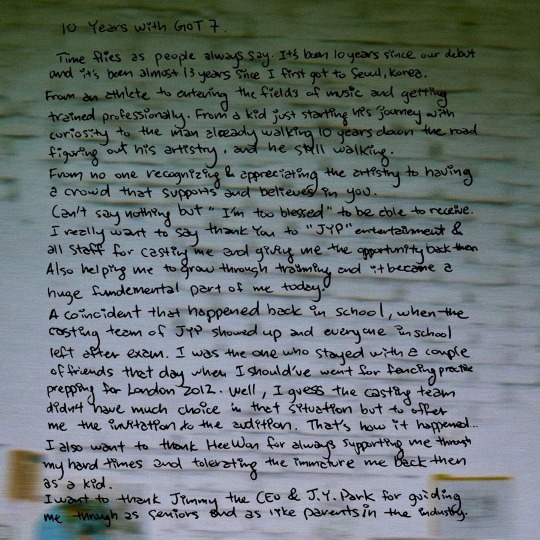 10 Years with GOT7.
Time flies as people always say. It's been 10 years since our debut
and it's been almost 13 years since I first got to Seoul, Korea.
From an athlete to entering the fields of music and getting
trained professionally. From a kid just starting his journey with
curiosity to the man already walking 10 years down the road
figuring out his artistry, and he still walking.
From no one recognizing & appreciating the artistry to having
a crowd that supports and believes in you.
Can't say nothing but "I'm too blessed" to be able to receive.
I really want to say thank you to "JYP" entertainment &
all staff for casting me and giving me the opportunity back then
Also helping me to grow through training and it became a
huge fundemental part of me today.
A coincident that happened back in school, when the
casting team of JYP showed up and everyone in school
left after exam. I was the one who stayed with a couple
of friends that day when I should've went for fencing practice
prepping for London 2012. Well, I guess the casting team
didn't have much choice in that situation but to offer
me the invitation to the audition. That's how it happened..
I also want to thank HeeWon for always supporting me through
my hard times and tolerating the immature me back then
as a kid.
I want to thank Jimmy the CEO & J.Y. Park for guiding
me through as seniors and as like parents in the industry.